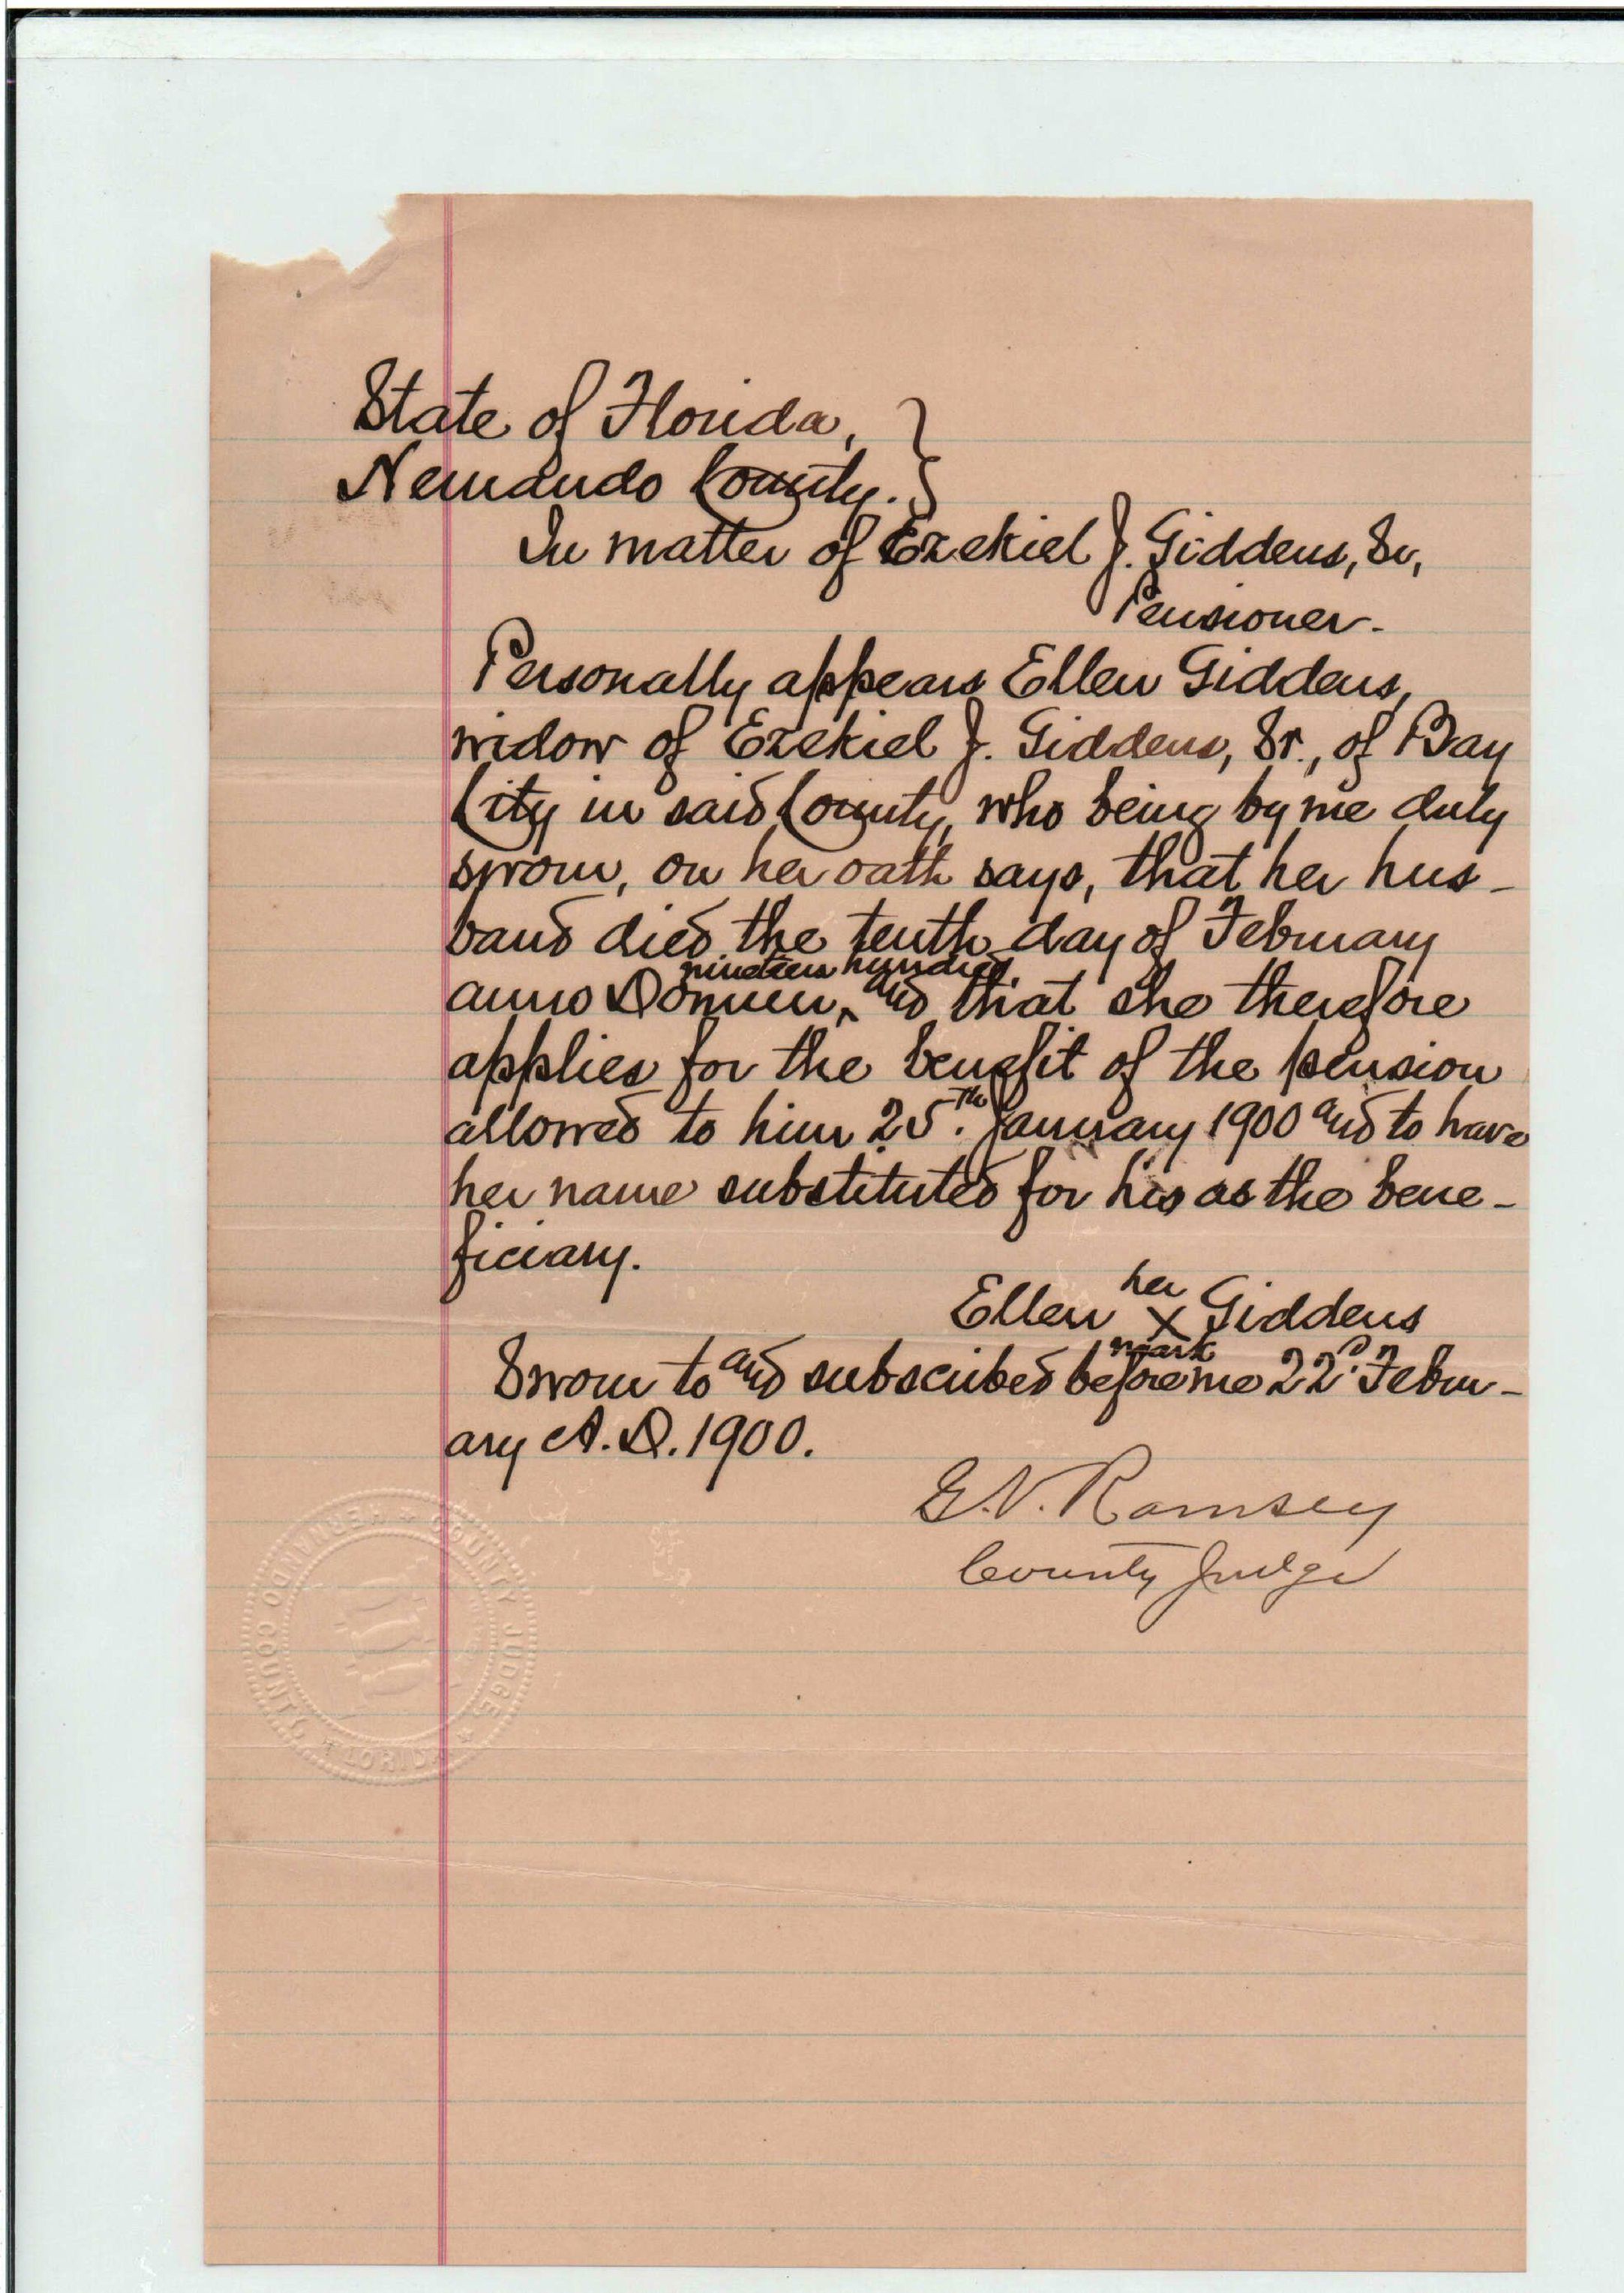 State of Florida, }
Hernando County. }
In matter of Ezekiel J. Giddens, Sr,
Pensioner.
Personally appears Ellen Giddens,
widow of Ezekiel J. Giddens, Sr., of Bay
City in said County, who being by me duly
sworn, on her oath says, that her hus-
band died the tenth day of February
nineteen hundred
anno Domini, ^ and that she therefore
applies for the benefit of the pension
allowed to him 25.th January 1900 and to have
her name substituted for his as the bene-
ficiary.
her
Ellen X Giddens
mark
Sworn to and subscribed before me 22.d Febru-
ary A.D. 1900.
G.V. Ramsey
County Judge
HERNANDO COUNTY FLORIDA * COUNTY JUDGE *